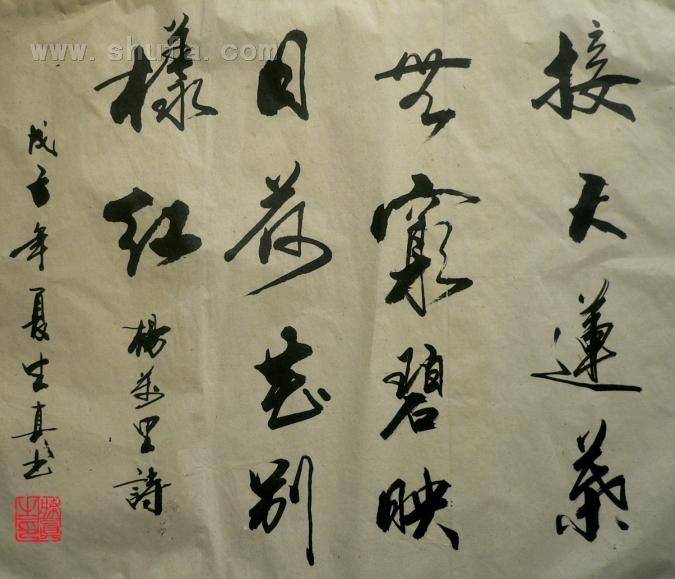 接天蓮葉
無窮碧映
日荷花別
樣紅
楊萬里詩
戊子年夏生真书
www.shufa.com